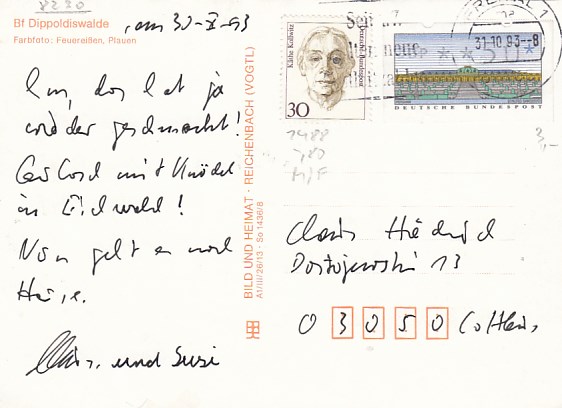 8230
Bf Dippoldiswalde
, am 30-X-93
Farbfoto: Feuereißen, Plauen
, das hat ja
wieder geschmeckt!
mit Knödel
in Eichwald!
Nun geht es nach
Hause.
und Susi
BILD UND HEIMAT · REICHENBACH (VOGTL)
A1/III/26/13 · So 1436/8
Käthe Kollwitz
Deutsche Bundespost
30
31.10.93--8
DEUTSCHE BUNDESPOST
1488
M/F
3,-
Dostojewski 13
0 3050 Cottbus